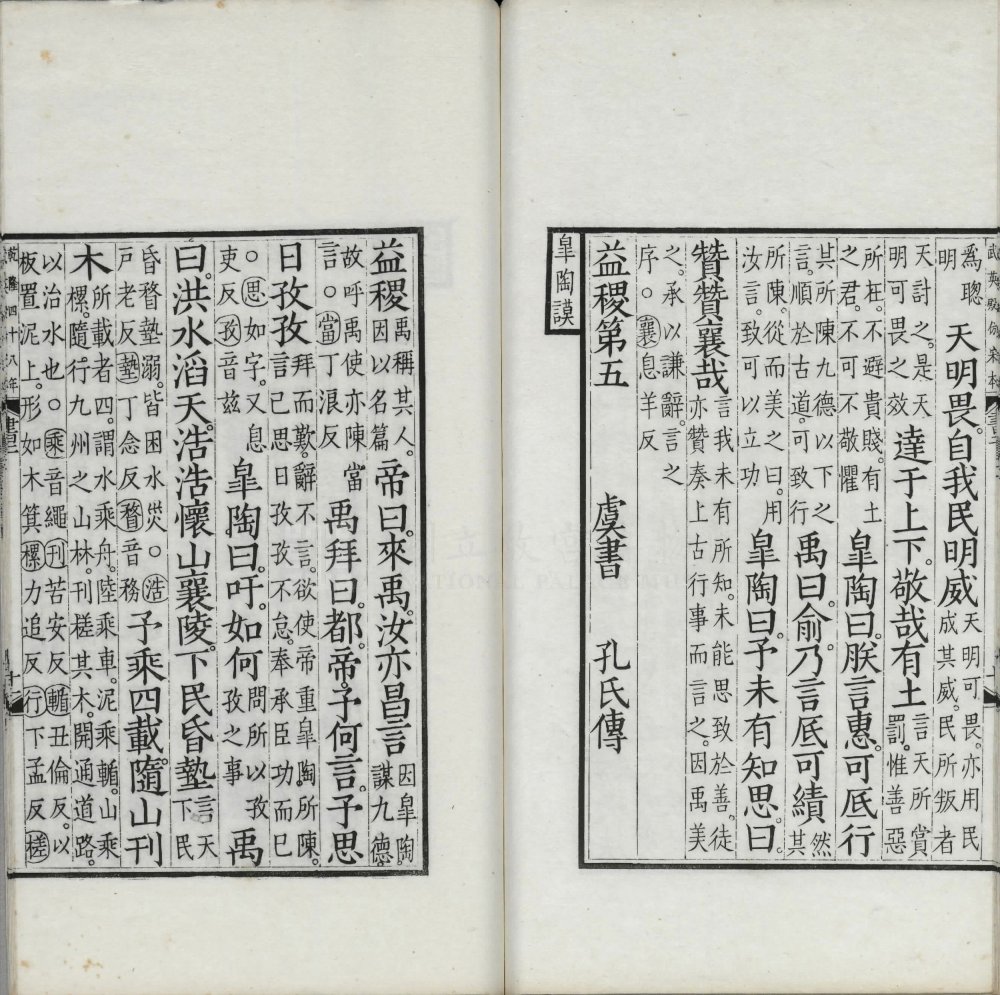 武英殿仿宋本
爲聰明 天明畏。自我民明威 天明可畏。亦用民成其威。民所叛者
天討之。是天明可畏之效 達于上下。敬哉有土 言天所賞罰。惟善惡
所在。不避貴賤。有土之君。不可不敬懼 皐陶曰。朕言惠。可厎行
其所陳九德以下之言。順於古道。可致行 禹曰。俞乃言厎可績 然其
所陳。從而美之曰。用汝言。致可以立功 皐陶曰。予未有知思。曰
贊贊襄哉 言我未有所知。未能思致於善。徒亦贊奏上古行事而言之。因禹美
之。承以謙辭。言之序。○襄息羊反
益稷第五 虞書 孔氏傳
皐陶謨
益稷 禹稱其人。因以名篇 帝曰。來禹。汝亦昌言 因皐陶謀九德
故呼禹使亦陳當言。○當丁浪反 禹拜曰。都。帝。予何言。予思
日孜孜 拜而歎。辭不言。欲使帝重皐陶所陳。言己思日孜孜不怠。奉承臣功而已
○思如字。又息吏反孜音兹 皐陶曰。吁。如何 問所以孜孜之事 禹
曰。洪水滔天。浩浩懷山襄陵。下民昏墊 言天下民
昏瞀墊溺。皆困水災。○浩戸老反墊丁念反瞀音務 予乘四載。隨山刊
木 所載者四。謂水乘舟。陸乘車。泥乘輴。山乘樏。隨行九州之山林。刊槎其木。開通道路。
以治水也。○乘音繩刊苦安反輴丑倫反。以板置泥上。形如木箕樏力追反行下孟反槎
乾隆四十八年